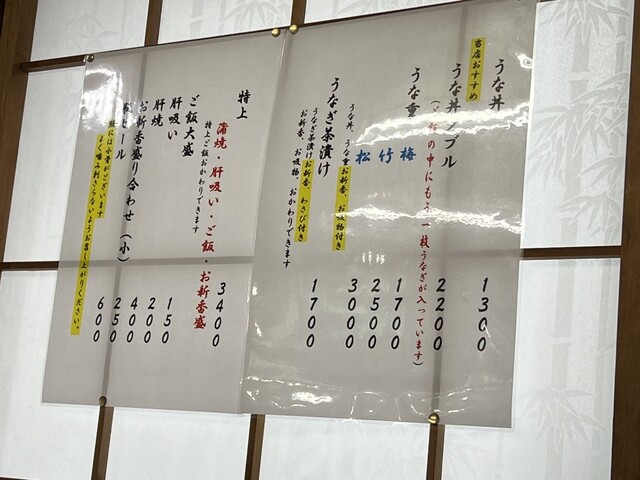 うな丼 1300
当店おすすめ
うな丼ダブル 2200
の中にもう一枚うなぎが入っています)
うな重
梅 1700
竹 2500
松 3000
うな丼、うな重お新香、お吸物付き
うなぎ茶漬け 1700
うなぎ茶漬けお新香、わさび付き
お新香、お吸物、おかわりできます
特上 3400
蒲焼・肝吸い・ご飯・お新香盛
特上ご飯おかわりできます
ご飯大盛 150
肝吸い 200
肝焼 400
お新香盛り合わせ(小) 250
ビール 600
には小骨がございます
よく噛み刺さらないようお召し上がりください。